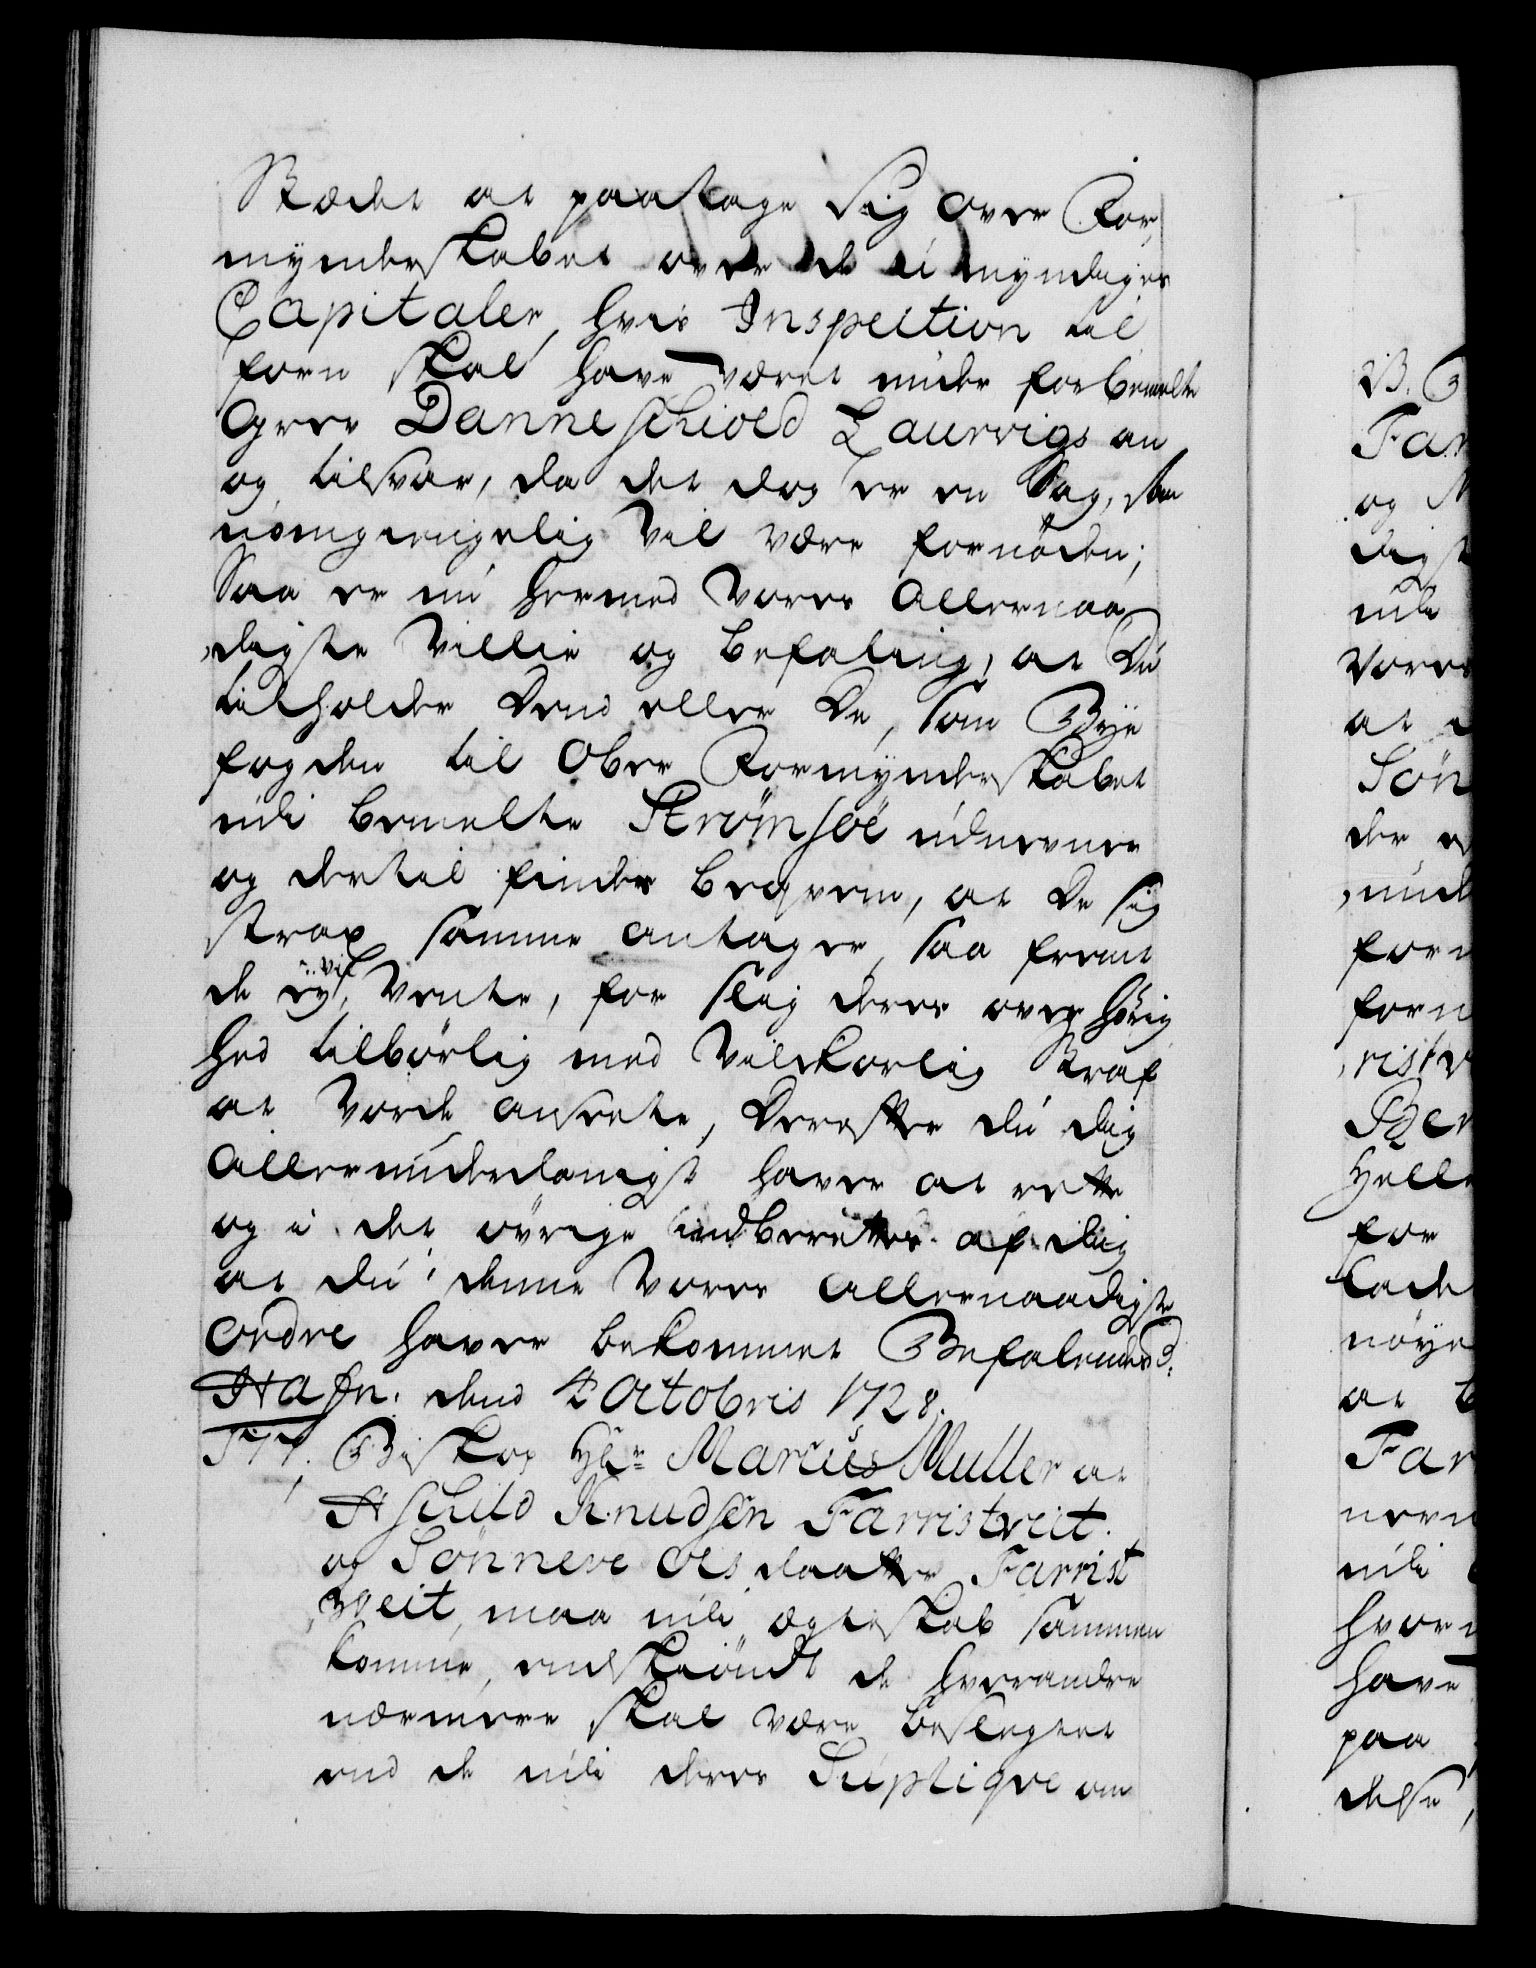 Stædet at paatage sig over For¬
mynderskabet over de umyndiges
Capitaler, hvis Inspection til
forn skal have været under forbemelte
Grev Danneschiold Laurvigs an¬
og tilsvar, da det dog er en Sag, som
uomgiengelig vil være fornøden;
Saa er nu hermed Vores Allernaa
digste Villie og Befaling, at Du
tilholder Dend eller De, som Bye
fogden til Ober Formynderskabet
udi bemelte Strømsøe udnevner
og dertil finder beqvem, at De sig
strax samme antager, saa fremt
de ey vil vente, for slig deres overhørig
hed tilbørlig med vilkorlig Straf
at vorde anseete, Derefter du dig
allerunderdanigst haver at rette
og i det øvrige indberettes af dig
at du denne Vores allernaadigste
Ordre haver bekommet Befalendes.
Hafn. dend 4 Octobris 1728.
Biskop Hr. Marcus Muller at
Aschild Knudsen Farristveit.
og Sønneve Olsdaatter Farrist
veit, maa udi ægteskab sammen
komme, endskiøndt de hverandre
nærmere skal være beslegtet
end de udi deres Suplique om
B.
Far
og
digst
udi
Vores
at
Søn
der
und
for
for
rist
Ber
Helle
for
lade
nøye
at
Far
udi
hvor
have
paa
delse,